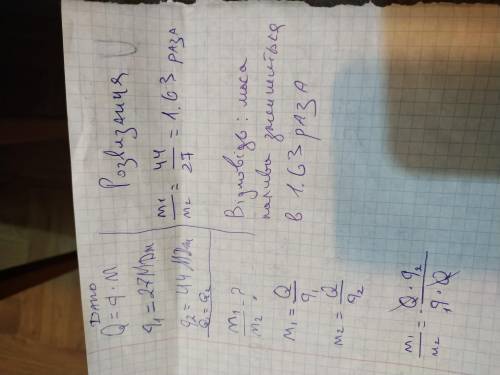 Дано
Q = q · m
q₁ = 27 МДж
q₂ = 44 МДж
Q₁ = Q₂
m₁/m₂ - ?
m₁ = Q/q₁
m₂ = Q/q₂
m₁/m₂ = Q · q₂ / q₁ · Q
Розвязання
m₁/m₂ = 44/27 = 1.63 раза
Відповідь: маса
палива зменшиться
в 1.63 раза